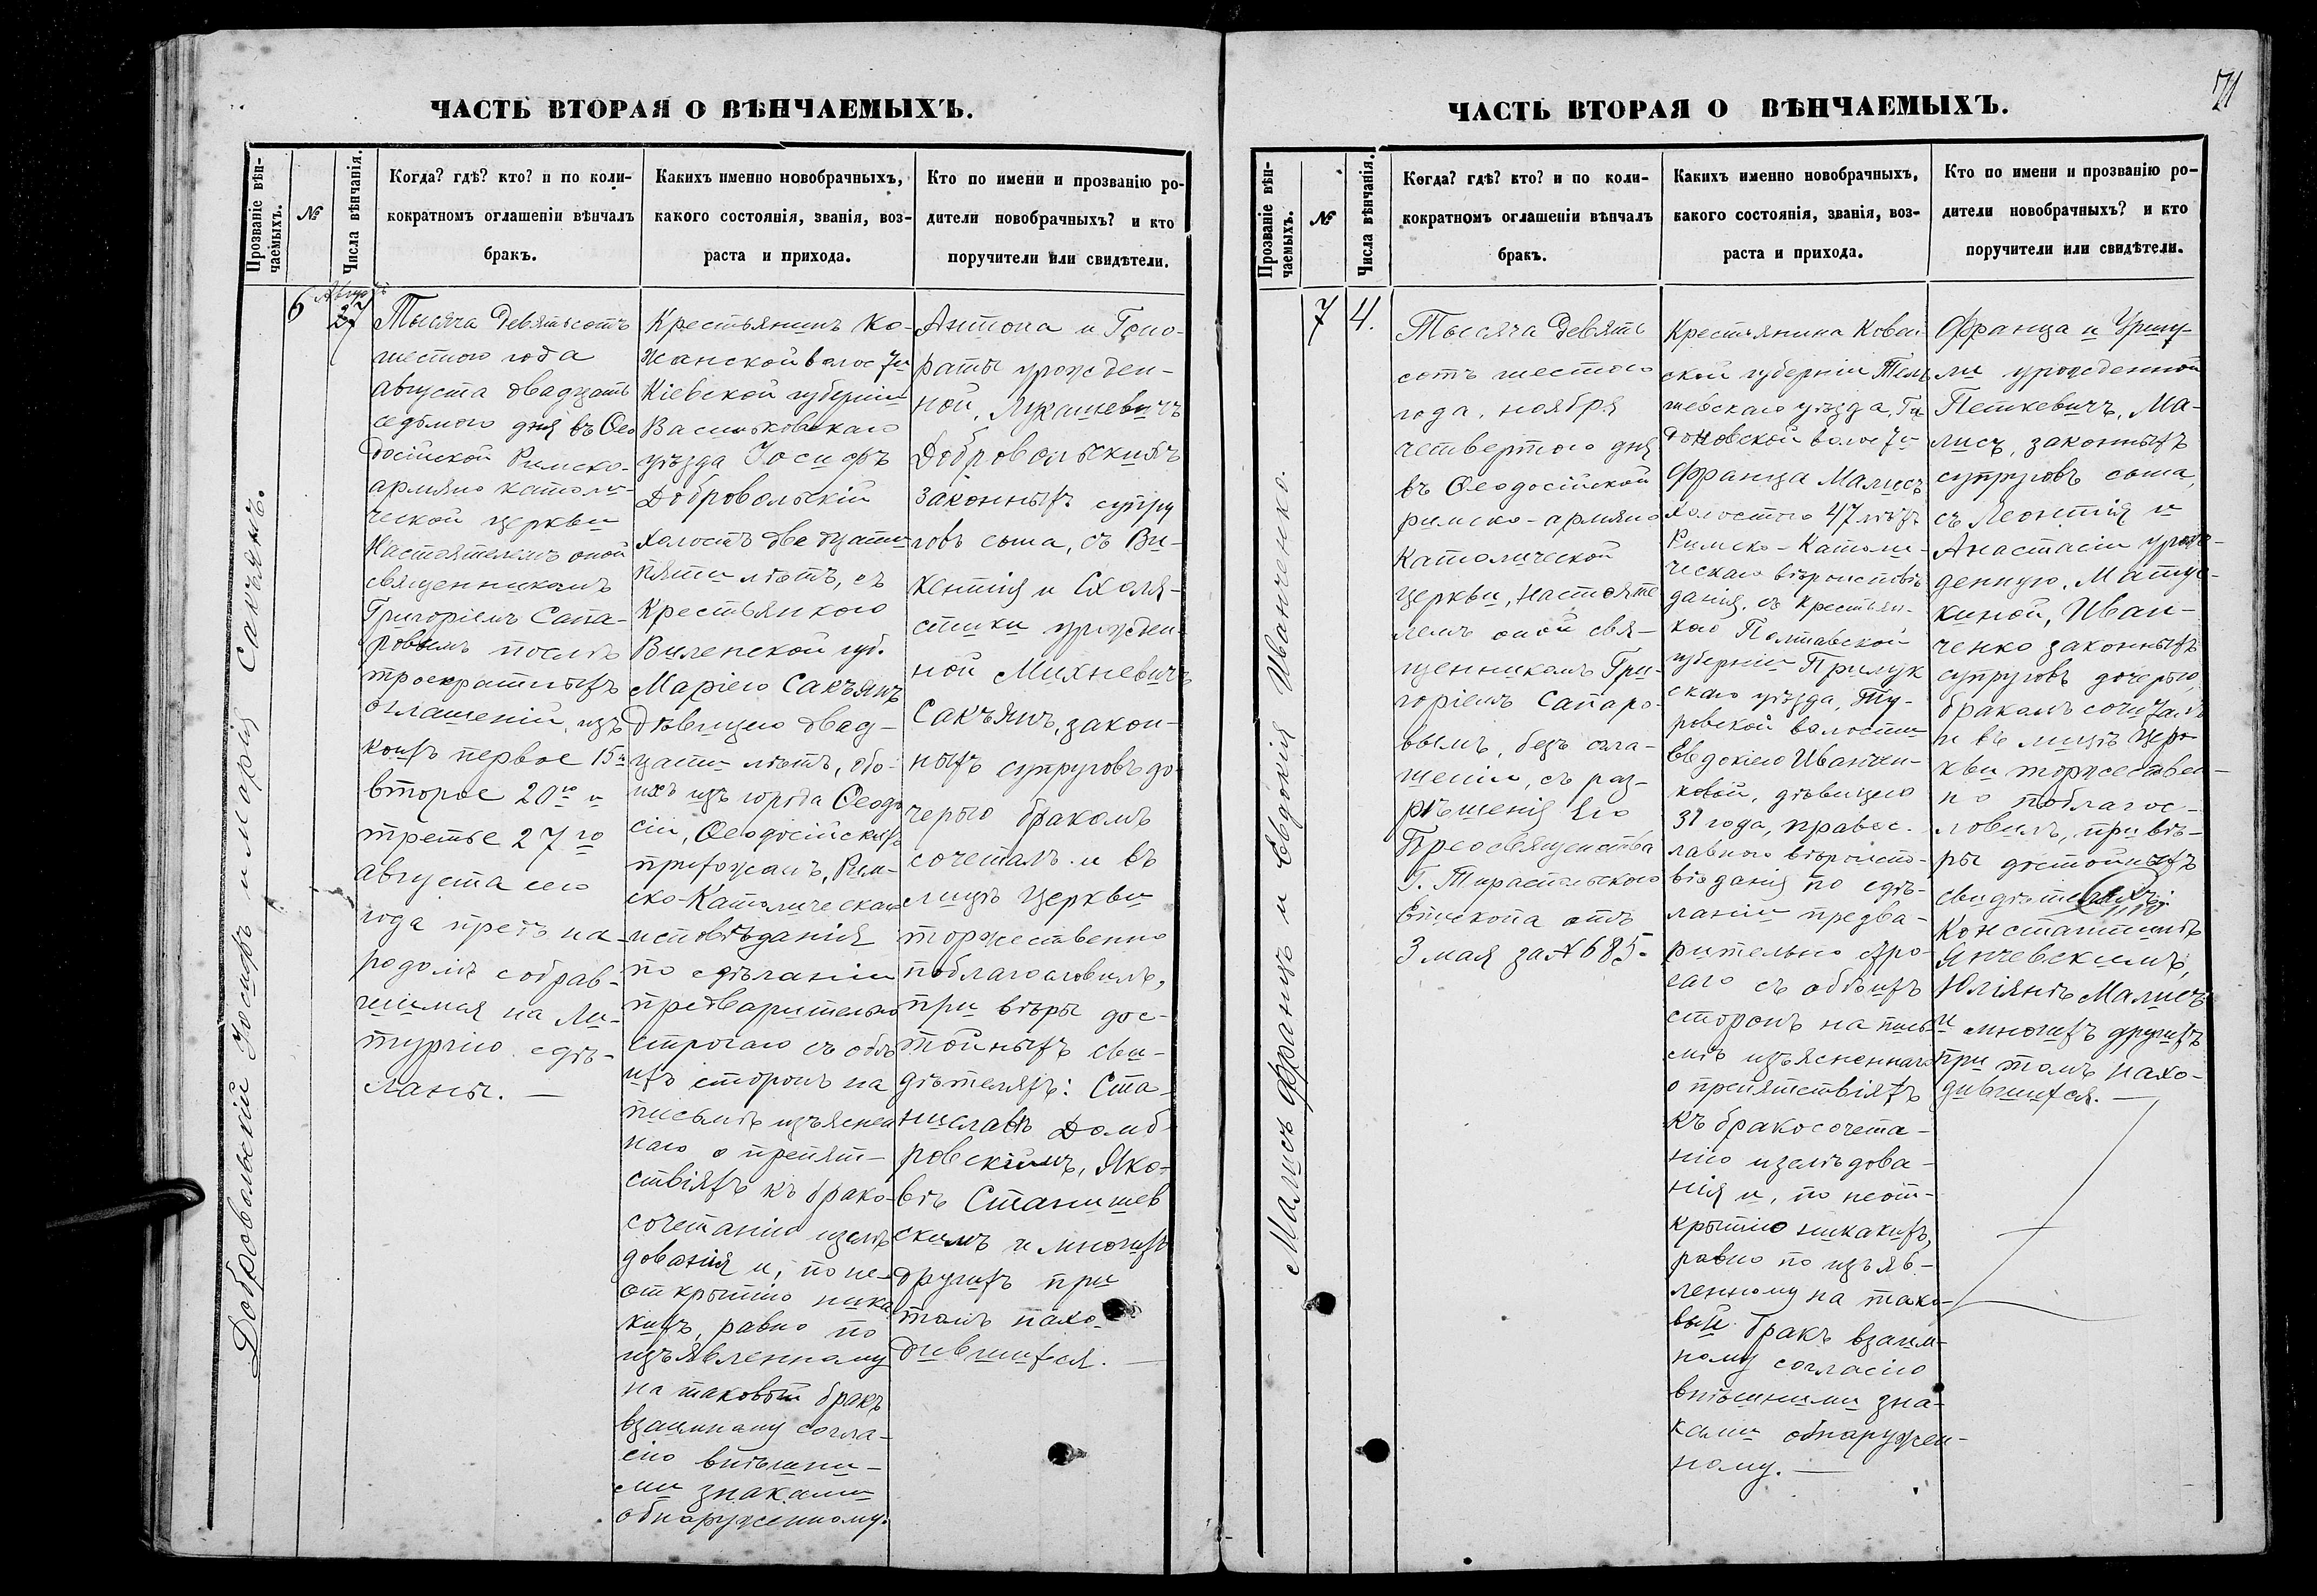 ЧАСТЬ ВТОРАЯ О ВѢНЧАЕМЫХЪ.
Прозваніе вѣн-
чаемыхъ.
№
Числа вѣнчанія.
Когда? гдѣ? кто? и по коли-
кократномъ оглашеніи вѣнчалъ
бракъ.
Какихъ именно новобрачныхъ,
какого состоянія, званія, воз-
раста и прихода.
Кто по имени и прозванію ро-
дители новобрачныхъ? и кто
поручители или свидѣтели.
Добровольскій Іосифъ и Марія Сакъянъ.
6
27
Тысяча девятьсотъ
шестого года
августа двадцать
седьмого дня въ Ѳео
досійской Римско-
армяно католи-
ческой церкви
Настоятелемъ оной
священникомъ
Григоріемъ Сапа-
ровымъ послѣ
троекратныхъ
оглашеній, изъ
коихъ первое 15го
второе 20го и
третье 27го
августа сего
года предъ на-
родомъ собрав-
шимся на Ли-
тургію сдѣ-
ланы. —
Крестьянинъ Ко-
жанской волости
Кіевской губерніи
Васильковскаго
уѣзда Іосифъ
Добровольскій
холостъ двадцати
пяти лѣтъ, съ
Крестьянкою
Виленской губ.
Маріею Сакъянъ
Дѣвицею двад-
цати лѣтъ, обо-
ихъ изъ города Ѳеодо
сіи, Ѳеодосійскихъ
прихожанъ, Рим-
ско-Католическаго
исповѣданія
по сдѣланіи
предварительно
строгаго съ обѣ
ихъ сторонъ на
письмѣ изъяснен
наго о препят-
ствіяхъ къ брако-
сочетанію изслѣ
дованія и, по не-
открытію ника
кихъ, равно по
изъявленному
на таковый бракъ
взаимному согла-
сію внѣшни-
ми знаками
обнаруженному.
Антона и
рожден-
ной, Лукашевичъ
Добровольскихъ
законныхъ супру
говъ сына, съ Ви-
кентія и Схоля-
стики урожден-
ной Михневичъ
Сакъянъ, закон-
ныхъ супруговъ до-
черью бракомъ
сочеталъ и въ
лицѣ Церкви
торжественно
поблагословилъ,
при вѣры дос-
тойныхъ сви-
дѣтеляхъ: Ста-
ниславѣ Домб-
ровскимъ, Яко-
вѣ Станишев
скимъ и многихъ
другихъ при
томъ нахо-
дившихся. —
71
ЧАСТЬ ВТОРАЯ О ВѢНЧАЕМЫХЪ.
Прозваніе вѣн-
чаемыхъ.
№
Числа вѣнчанія.
Когда? гдѣ? кто? и по коли-
кократномъ оглашеніи вѣнчалъ
бракъ.
Какихъ именно новобрачныхъ,
какого состоянія, званія, воз-
раста и прихода.
Кто по имени и прозванію ро-
дители новобрачныхъ? и кто
поручители или свидѣтели.
Малисъ Францъ и Евдокія Иванченко.
7
4.
Тысяча девять
сотъ шестого
года, ноября
четвертого дня
въ Ѳеодосійской
римско-армяно
Католической
церкви, Настояте
лемъ оной свя-
щенникомъ Гри-
горіемъ Сапаро-
вымъ, безъ огла-
шенія, съ раз-
рѣшенія Его
Преосвященства
Г. Тираспольского
Епископа отъ
3 мая за № 685.
Крестьянина Ковен
ской губерніи Тель
шевскаго уѣзда,
волости
Франца Малисъ
холостого 47 лѣтъ
Римско-Католи-
ческаго вѣроисповѣ
данія, съ крестьян-
кою Полтавской
губерніи Прилук
скаго уѣзда, Ту-
ровской волости
Евдокіею Иванчен-
ковой, дѣвицею
31 года, правос-
лавного вѣроиспо-
вѣданія по сдѣ-
ланіи предва-
рительно стро-
гаго съ обѣихъ
сторонъ на пись
мѣ изъясненнаго
о препятствіяхъ
къ бракосочета-
нію изслѣдова-
нія и, по неот-
крытію никакихъ,
равно по изъяв-
ленному на тако-
вый бракъ взаим-
ному согласію
внѣшними зна-
ками обнаружен-
ному. —
Франца и Уршу-
ли урожденной
Петкевичъ, Ма-
лисъ, законныхъ
супруговъ сына,
съ Леонтія и
Анастасіи урож-
денную,
Иван-
ченко законныхъ
супруговъ дочерью,
бракомъ сочеталъ
и въ лицѣ Цер-
кви торжествен-
но поблагос-
ловилъ, при вѣ-
ры достойныхъ
свидѣтеляхъ:
Константинѣ
Янчевскимъ,
Юліянѣ Малисъ
и многихъ другихъ
при томъ нахо-
дившихся. —